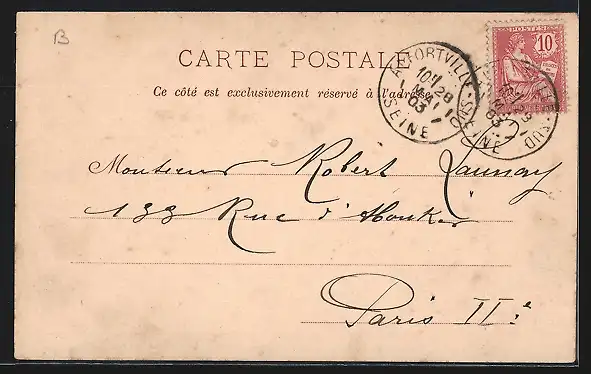 B
CARTE POSTALE
Ce côté est exclusivement réservé à l'adresse
ALFORTVILLE
10 28
MAI
03
SEINE
10
SUD
Monsieur Robert Launay
133 Rue d'Aboukir
Paris II.e